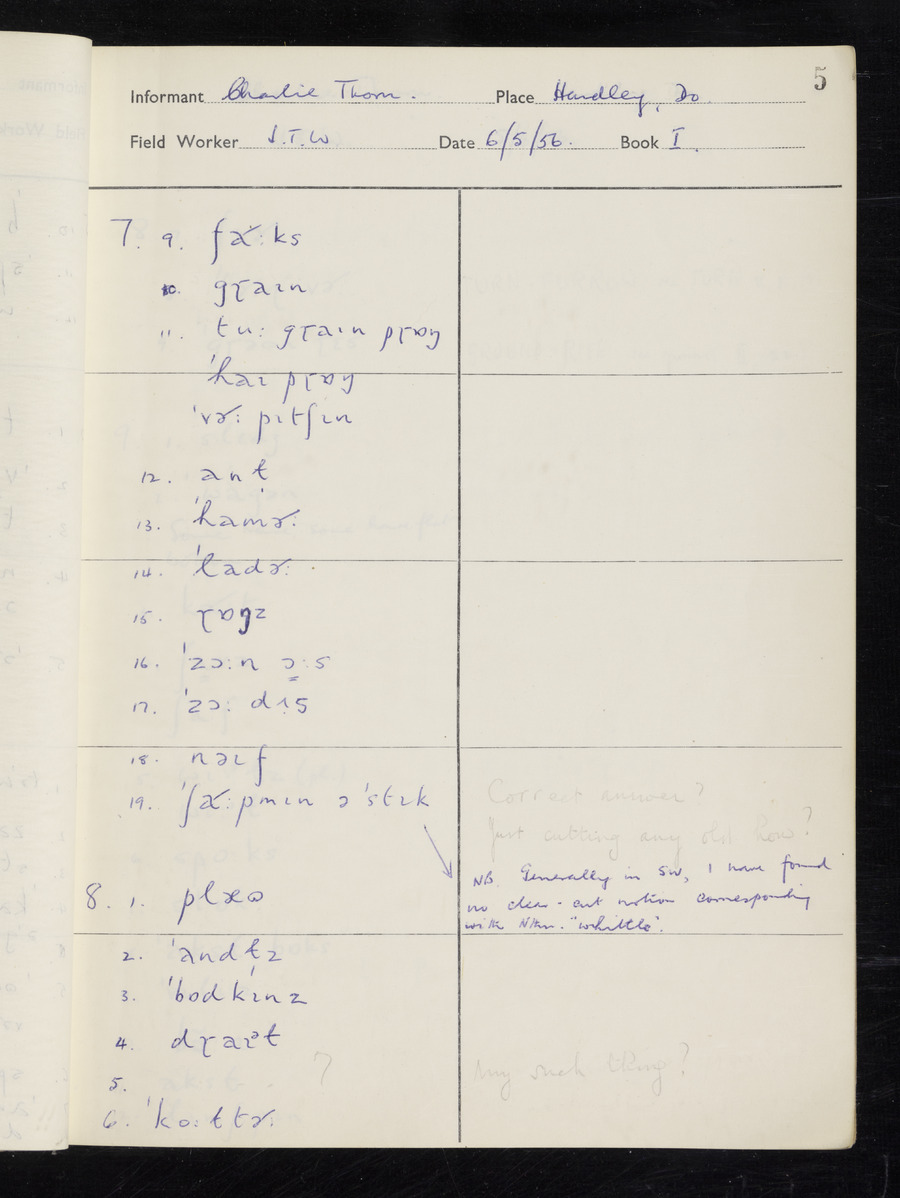 5
Informant Charlie Thorn. Place Handley, Do.
Field Worker J.T.W Date 6/5/56. Book I.
7. 9. fɚ:ks
10. gɽaɪn
11. tu: gɽaɪn pɽɒŋ
ˈhaɪ pɽɒŋ
ˈvɚ: pɪtʃɪn
12. anɫ
13. ˈhamɚ:
14. ˈɫadɚ:
15. ɽɒgz
16. ˈzɔ:n ɔ:s
17. ˈzɔ: dɪs
18. nəɪf
19. ˈʃɚ:pmɪn ə ˈstɪk
Correct answer?
Just cutting any old how?
NB. Generally in SW, I have found
no clear-cut notion corresponding
with Nthn. "whittle".
8. 1. plæʊ
2. ˈandɫz
3. ˈbɒdkɪnz
4. dɽaɪət
5. ?
Any such thing?
6. ˈko:ɫtɚ: